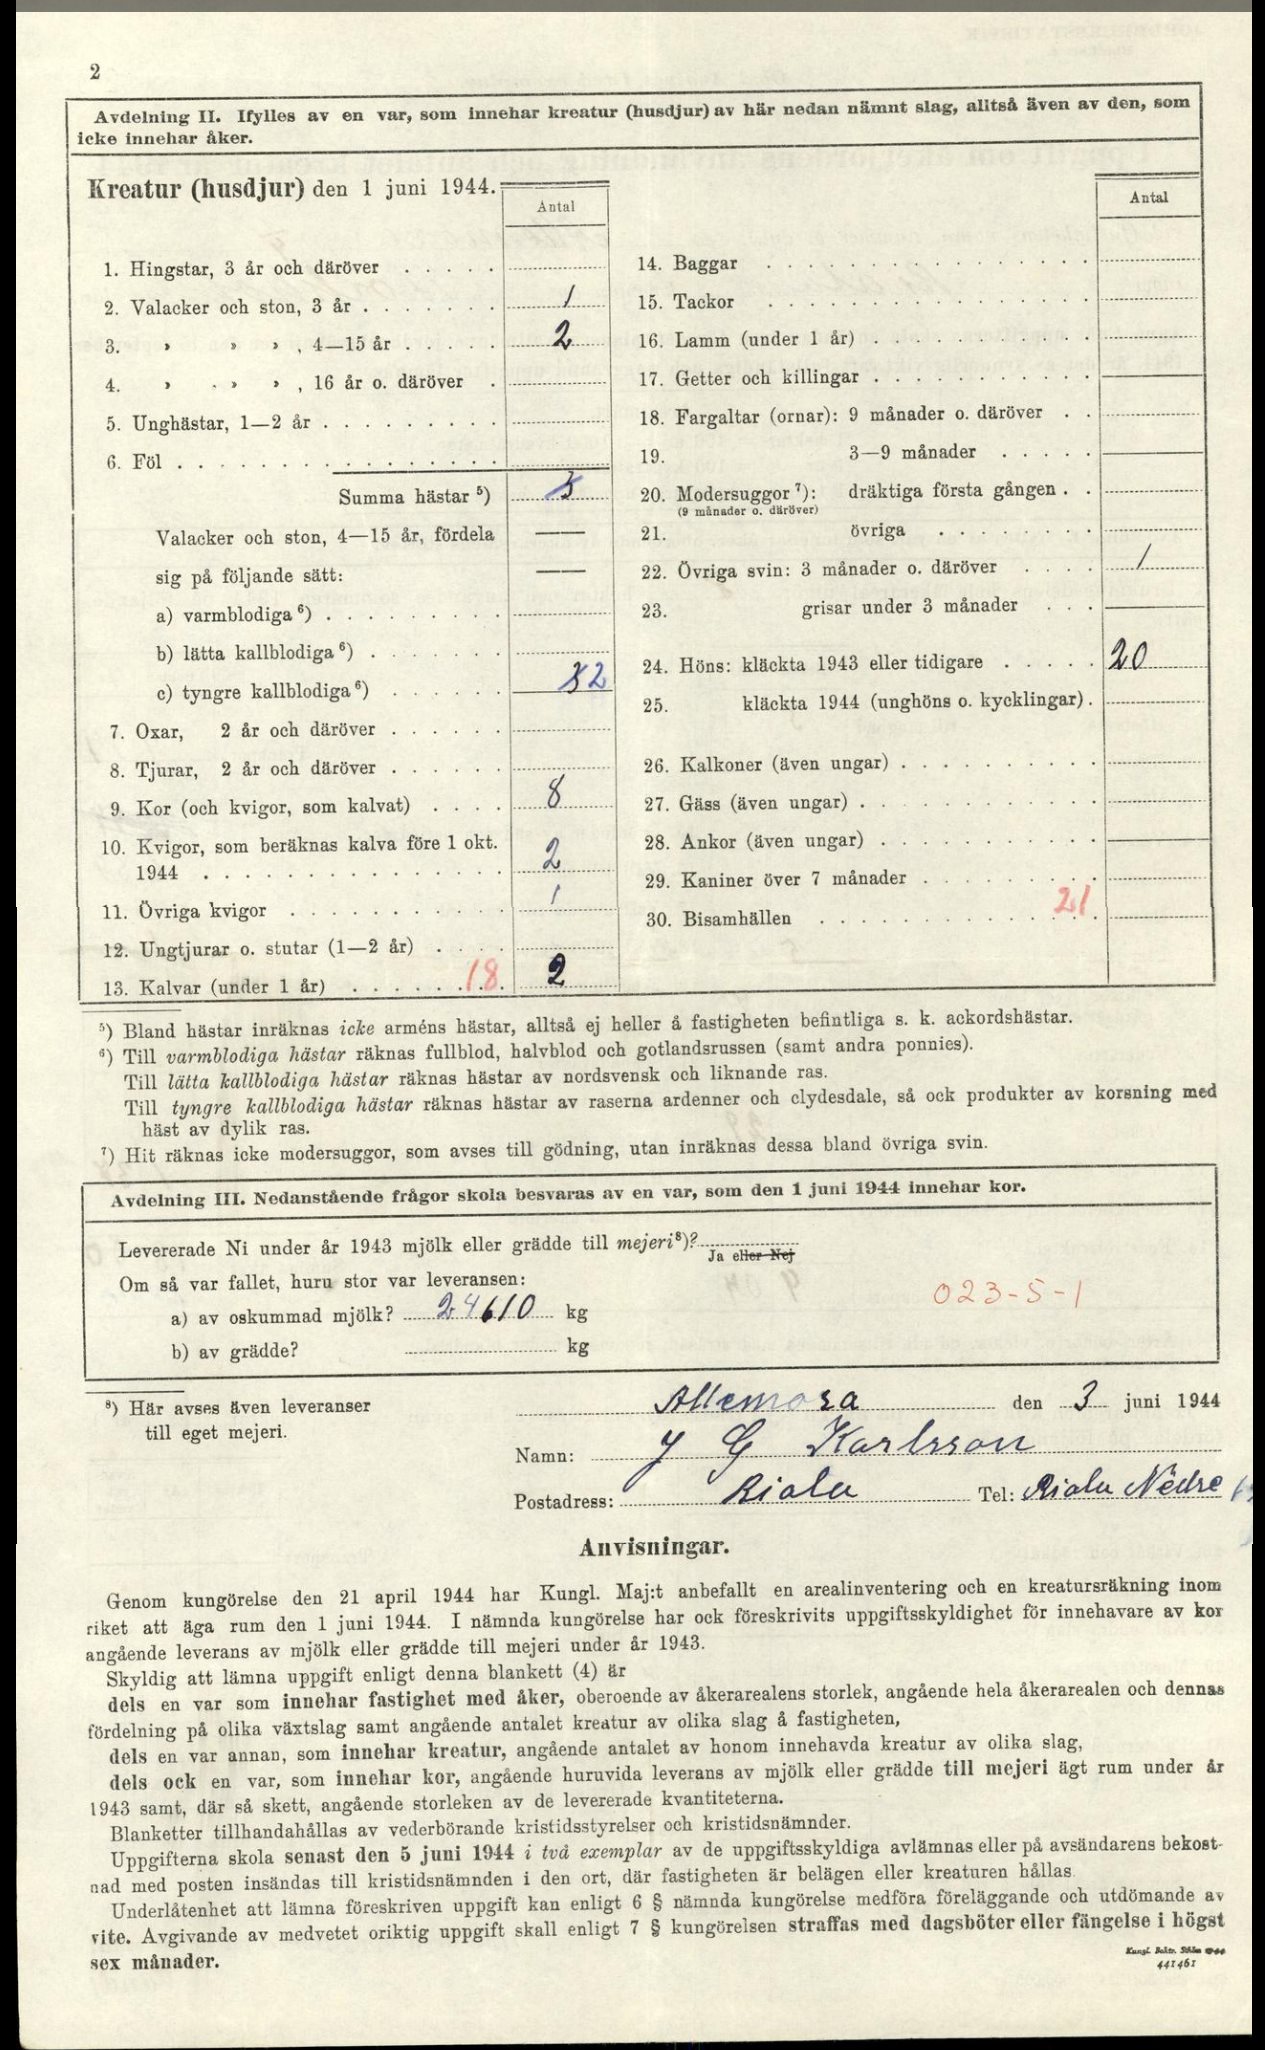 2
Avdelning II. Ifylles av en var, som innehar kreatur (husdjur) av här nedan nämnt slag, alltså även av den, som
icke innehar åker.
Kreatur (husdjur) den 1 juni 1944.
Antal
1. Hingstar, 3 år och däröver . . . . .
2. Valacker och ston, 3 år . . . . . . . 1
3. » » » , 4—15 år . . . . . 2
4. » » » , 16 år o. däröver .
5. Unghästar, 1—2 år . . . . . . . . .
6. Föl . . . . . . . . . . . . . . .
Summa hästar ⁵) 3
Valacker och ston, 4—15 år, fördela
sig på följande sätt:
a) varmblodiga ⁶) . . . . . . . . .
b) lätta kallblodiga ⁶) . . . . . . .
c) tyngre kallblodiga ⁶) . . . . . . 3 2
7. Oxar, 2 år och däröver . . . . . .
8. Tjurar, 2 år och däröver . . . . . .
9. Kor (och kvigor, som kalvat) . . . . 8
10. Kvigor, som beräknas kalva före 1 okt.
1944 . . . . . . . . . . . . . . . 2
11. Övriga kvigor . . . . . . . . . . . 1
12. Ungtjurar o. stutar (1—2 år) . . . .
13. Kalvar (under 1 år) . . . . . . . 18 2
Antal
14. Baggar . . . . . . . . . . . . . . .
15. Tackor . . . . . . . . . . . . . . .
16. Lamm (under 1 år) . . . . . . . . . .
17. Getter och killingar . . . . . . . . . .
18. Fargaltar (ornar): 9 månader o. däröver . .
19. 3—9 månader . . . . .
20. Modersuggor ⁷): dräktiga första gången . .
(9 månader o. däröver)
21. övriga . . . . . . . .
22. Övriga svin: 3 månader o. däröver . . . . 1
23. grisar under 3 månader . . .
24. Höns: kläckta 1943 eller tidigare . . . . . 20
25. kläckta 1944 (unghöns o. kycklingar) .
26. Kalkoner (även ungar) . . . . . . . . .
27. Gäss (även ungar) . . . . . . . . . . .
28. Ankor (även ungar) . . . . . . . . . .
29. Kaniner över 7 månader . . . . . . . .
30. Bisamhällen . . . . . . . . . . . . 21
⁵) Bland hästar inräknas icke arméns hästar, alltså ej heller å fastigheten befintliga s. k. ackordshästar.
⁶) Till varmblodiga hästar räknas fullblod, halvblod och gotlandsrussen (samt andra ponnies).
Till lätta kallblodiga hästar räknas hästar av nordsvensk och liknande ras.
Till tyngre kallblodiga hästar räknas hästar av raserna ardenner och clydesdale, så ock produkter av korsning med
häst av dylik ras.
⁷) Hit räknas icke modersuggor, som avses till gödning, utan inräknas dessa bland övriga svin.
Avdelning III. Nedanstående frågor skola besvaras av en var, som den 1 juni 1944 innehar kor.
Levererade Ni under år 1943 mjölk eller grädde till mejeri⁸)?
Ja eller Nej
Om så var fallet, huru stor var leveransen:
a) av oskummad mjölk? 24610 kg
b) av grädde? kg
023-5-1
⁸) Här avses även leveranser
till eget mejeri.
Allemora den 3 juni 1944
Namn: J G Karlsson
Postadress: Riala Tel: Riala Nedre
Anvisningar.
Genom kungörelse den 21 april 1944 har Kungl. Maj:t anbefallt en arealinventering och en kreatursräkning inom
riket att äga rum den 1 juni 1944. I nämnda kungörelse har ock föreskrivits uppgiftsskyldighet för innehavare av kor
angående leverans av mjölk eller grädde till mejeri under år 1943.
Skyldig att lämna uppgift enligt denna blankett (4) är
dels en var som innehar fastighet med åker, oberoende av åkerarealens storlek, angående hela åkerarealen och dennas
fördelning på olika växtslag samt angående antalet kreatur av olika slag å fastigheten,
dels en var annan, som innehar kreatur, angående antalet av honom innehavda kreatur av olika slag,
dels ock en var, som innehar kor, angående huruvida leverans av mjölk eller grädde till mejeri ägt rum under år
1943 samt, där så skett, angående storleken av de levererade kvantiteterna.
Blanketter tillhandahållas av vederbörande kristidsstyrelser och kristidsnämnder.
Uppgifterna skola senast den 5 juni 1944 i två exemplar av de uppgiftsskyldiga avlämnas eller på avsändarens bekost-
nad med posten insändas till kristidsnämnden i den ort, där fastigheten är belägen eller kreaturen hållas.
Underlåtenhet att lämna föreskriven uppgift kan enligt 6 § nämnda kungörelse medföra föreläggande och utdömande av
vite. Avgivande av medvetet oriktig uppgift skall enligt 7 § kungörelsen straffas med dagsböter eller fängelse i högst
sex månader.
Kungl. Boktr. Sthlm 1944
441461